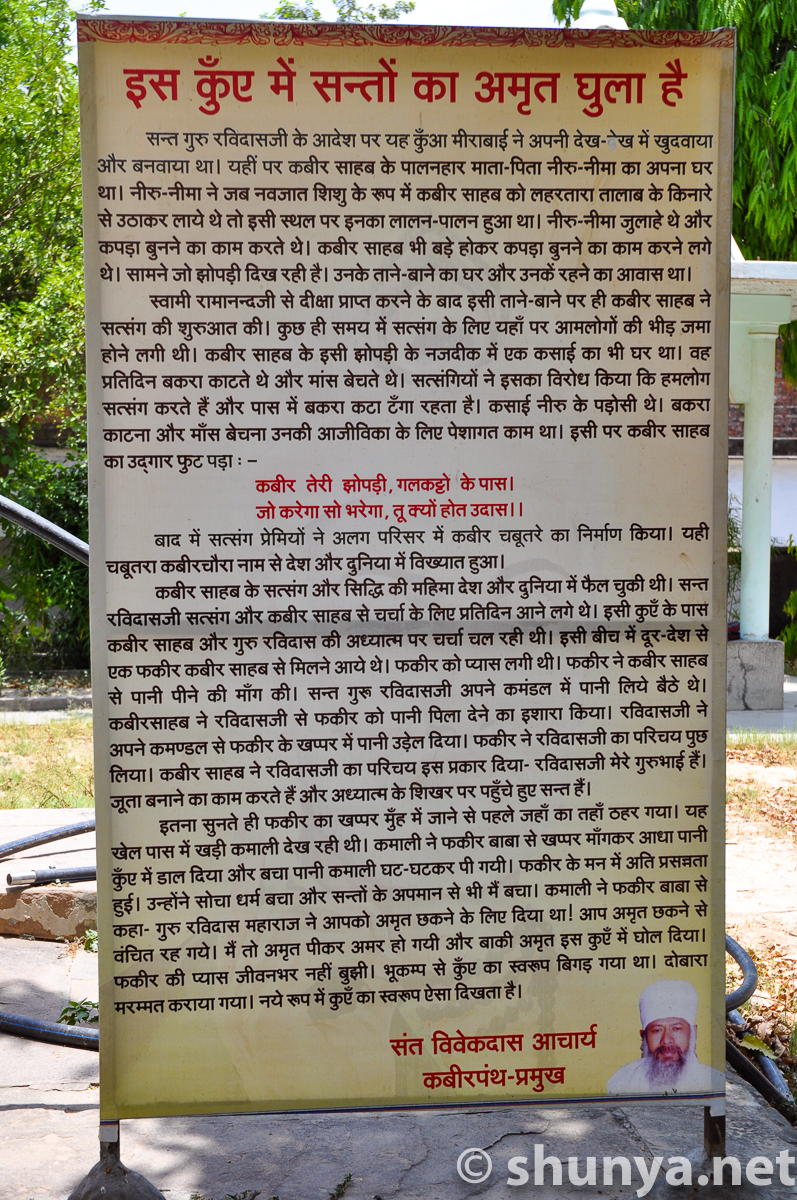 इस कुँए में सन्तों का अमृत घुला है
सन्त गुरु रविदासजी के आदेश पर यह कुँआ मीराबाई ने अपनी देख-रेख में खुदवाया
और बनवाया था। यहीं पर कबीर साहब के पालनहार माता-पिता नीरु-नीमा का अपना घर
था। नीरु-नीमा ने जब नवजात शिशु के रूप में कबीर साहब को लहरतारा तालाब के किनारे
से उठाकर लाये थे तो इसी स्थल पर इनका लालन-पालन हुआ था। नीरु-नीमा जुलाहे थे और
कपड़ा बुनने का काम करते थे। कबीर साहब भी बड़े होकर कपड़ा बुनने का काम करने लगे
थे। सामने जो झोपड़ी दिख रही है। उनके ताने-बाने का घर और उनकें रहने का आवास था।
स्वामी रामानन्दजी से दीक्षा प्राप्त करने के बाद इसी ताने-बाने पर ही कबीर साहब ने
सत्संग की शुरुआत की। कुछ ही समय में सत्संग के लिए यहाँ पर आमलोगों की भीड़ जमा
होने लगी थी। कबीर साहब के इसी झोपड़ी के नजदीक में एक कसाई का भी घर था। वह
प्रतिदिन बकरा काटते थे और मांस बेचते थे। सत्संगियों ने इसका विरोध किया कि हमलोग
सत्संग करते हैं और पास में बकरा कटा टँगा रहता है। कसाई नीरु के पड़ोसी थे। बकरा
काटना और माँस बेचना उनकी आजीविका के लिए पेशागत काम था। इसी पर कबीर साहब
का उद्गार फुट पड़ा : –
कबीर तेरी झोपड़ी, गलकट्टो के पास।
जो करेगा सो भरेगा, तू क्यों होत उदास।।
बाद में सत्संग प्रेमियों ने अलग परिसर में कबीर चबूतरे का निर्माण किया। यही
चबूतरा कबीरचौरा नाम से देश और दुनिया में विख्यात हुआ।
कबीर साहब के सत्संग और सिद्धि की महिमा देश और दुनिया में फैल चुकी थी। सन्त
रविदासजी सत्संग और कबीर साहब से चर्चा के लिए प्रतिदिन आने लगे थे। इसी कुएँ के पास
कबीर साहब और गुरु रविदास की अध्यात्म पर चर्चा चल रही थी। इसी बीच में दूर-देश से
एक फकीर कबीर साहब से मिलने आये थे। फकीर को प्यास लगी थी। फकीर ने कबीर साहब
से पानी पीने की माँग की। सन्त गुरू रविदासजी अपने कमंडल में पानी लिये बैठे थे।
कबीरसाहब ने रविदासजी से फकीर को पानी पिला देने का इशारा किया। रविदासजी ने
अपने कमण्डल से फकीर के खप्पर में पानी उड़ेल दिया। फकीर ने रविदासजी का परिचय पुछ
लिया। कबीर साहब ने रविदासजी का परिचय इस प्रकार दिया- रविदासजी मेरे गुरुभाई हैं।
जूता बनाने का काम करते हैं और अध्यात्म के शिखर पर पहुँचे हुए सन्त हैं।
इतना सुनते ही फकीर का खप्पर मुँह में जाने से पहले जहाँ का तहाँ ठहर गया। यह
खेल पास में खड़ी कमाली देख रही थी। कमाली ने फकीर बाबा से खप्पर माँगकर आधा पानी
कुँए में डाल दिया और बचा पानी कमाली घट-घटकर पी गयी। फकीर के मन में अति प्रसन्नता
हुई। उन्होंने सोचा धर्म बचा और सन्तों के अपमान से भी मैं बचा। कमाली ने फकीर बाबा से
कहा- गुरु रविदास महाराज ने आपको अमृत छकने के लिए दिया था! आप अमृत छकने से
वंचित रह गये। मैं तो अमृत पीकर अमर हो गयी और बाकी अमृत इस कुएँ में घोल दिया।
फकीर की प्यास जीवनभर नहीं बुझी। भूकम्प से कुँए का स्वरूप बिगड़ गया था। दोबारा
मरम्मत कराया गया। नये रूप में कुएँ का स्वरूप ऐसा दिखता है।
संत विवेकदास आचार्य
कबीरपंथ-प्रमुख
© shunya.net